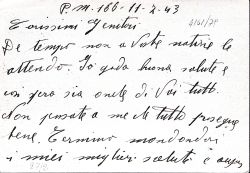 P.M. 166-11-2-43
Carissimi Genitori
Da tempo non o Vostre notizie le
attendo. Io godo buona salute e
così spero sia anche di Voi tutti.
Non pensate a me che tutto prosegue
bene. Termino mandandovi
i miei migliori saluti e auguri